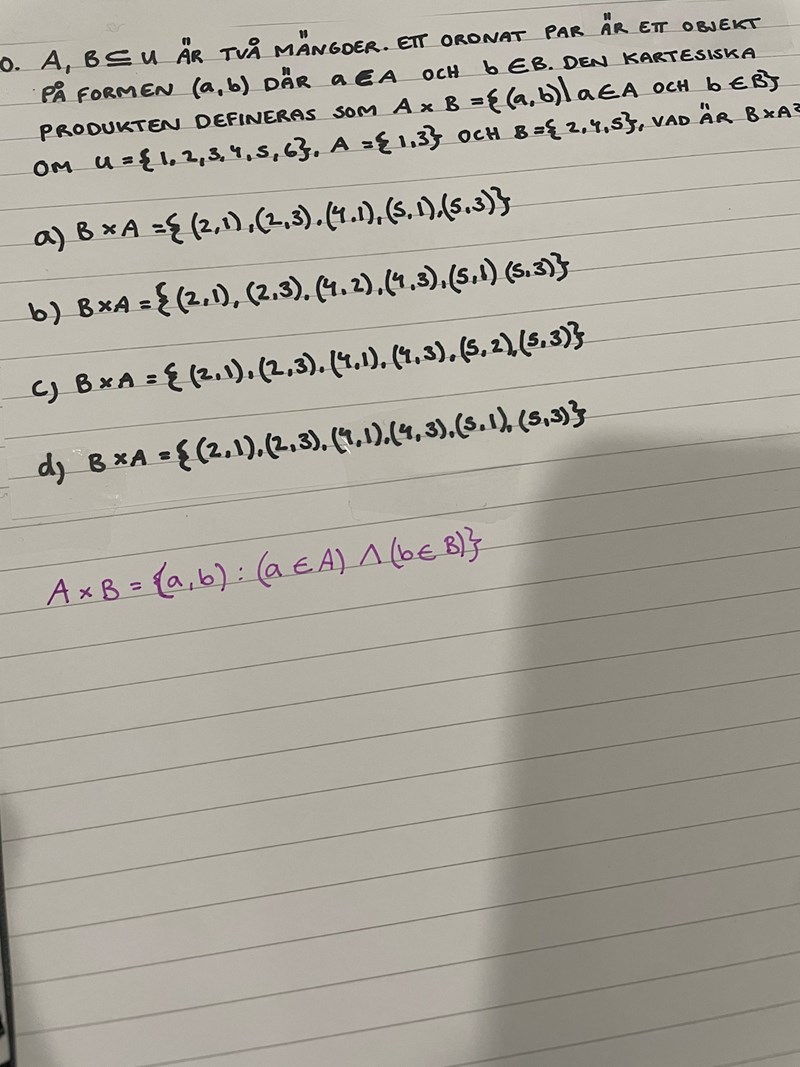 0. A, B ⊆ U ÄR TVÅ MÄNGDER. ETT ORDNAT PAR ÄR ETT OBJEKT
PÅ FORMEN (a,b) DÄR a ∈ A OCH b ∈ B. DEN KARTESISKA
PRODUKTEN DEFINERAS SOM A × B = {(a,b)| a ∈ A OCH b ∈ B}
OM U = {1,2,3,4,5,6}, A = {1,3} OCH B = {2,4,5}, VAD ÄR B×A?
a) B × A = {(2,1),(2,3),(4,1),(5,1),(5,3)}
b) B×A = {(2,1), (2,3), (4,2), (4,3), (5,1) (5,3)}
c) B × A = {(2,1), (2,3), (4,1), (4,3), (5,2), (5,3)}
d) B × A = {(2,1),(2,3),(4,1),(4,3),(5,1),(5,3)}
A × B = {a,b) : (a ∈ A) ∧ (b ∈ B)}